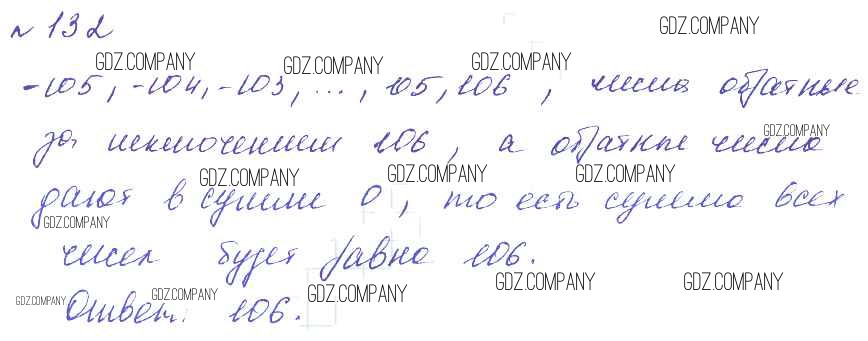 № 132
-105, -104, -103, ..., 105, 106, числа обратные
за исключением 106, а обратные числа
дают в сумме 0, то есть сумма всех
чисел будет равна 106.
Ответ: 106.
GDZ.COMPANY
GDZ.COMPANY
GDZ.COMPANY
GDZ.COMPANY
GDZ.COMPANY
GDZ.COMPANY
GDZ.COMPANY
GDZ.COMPANY
GDZ.COMPANY
GDZ.COMPANY
GDZ.COMPANY
GDZ.COMPANY
GDZ.COMPANY
GDZ.COMPANY